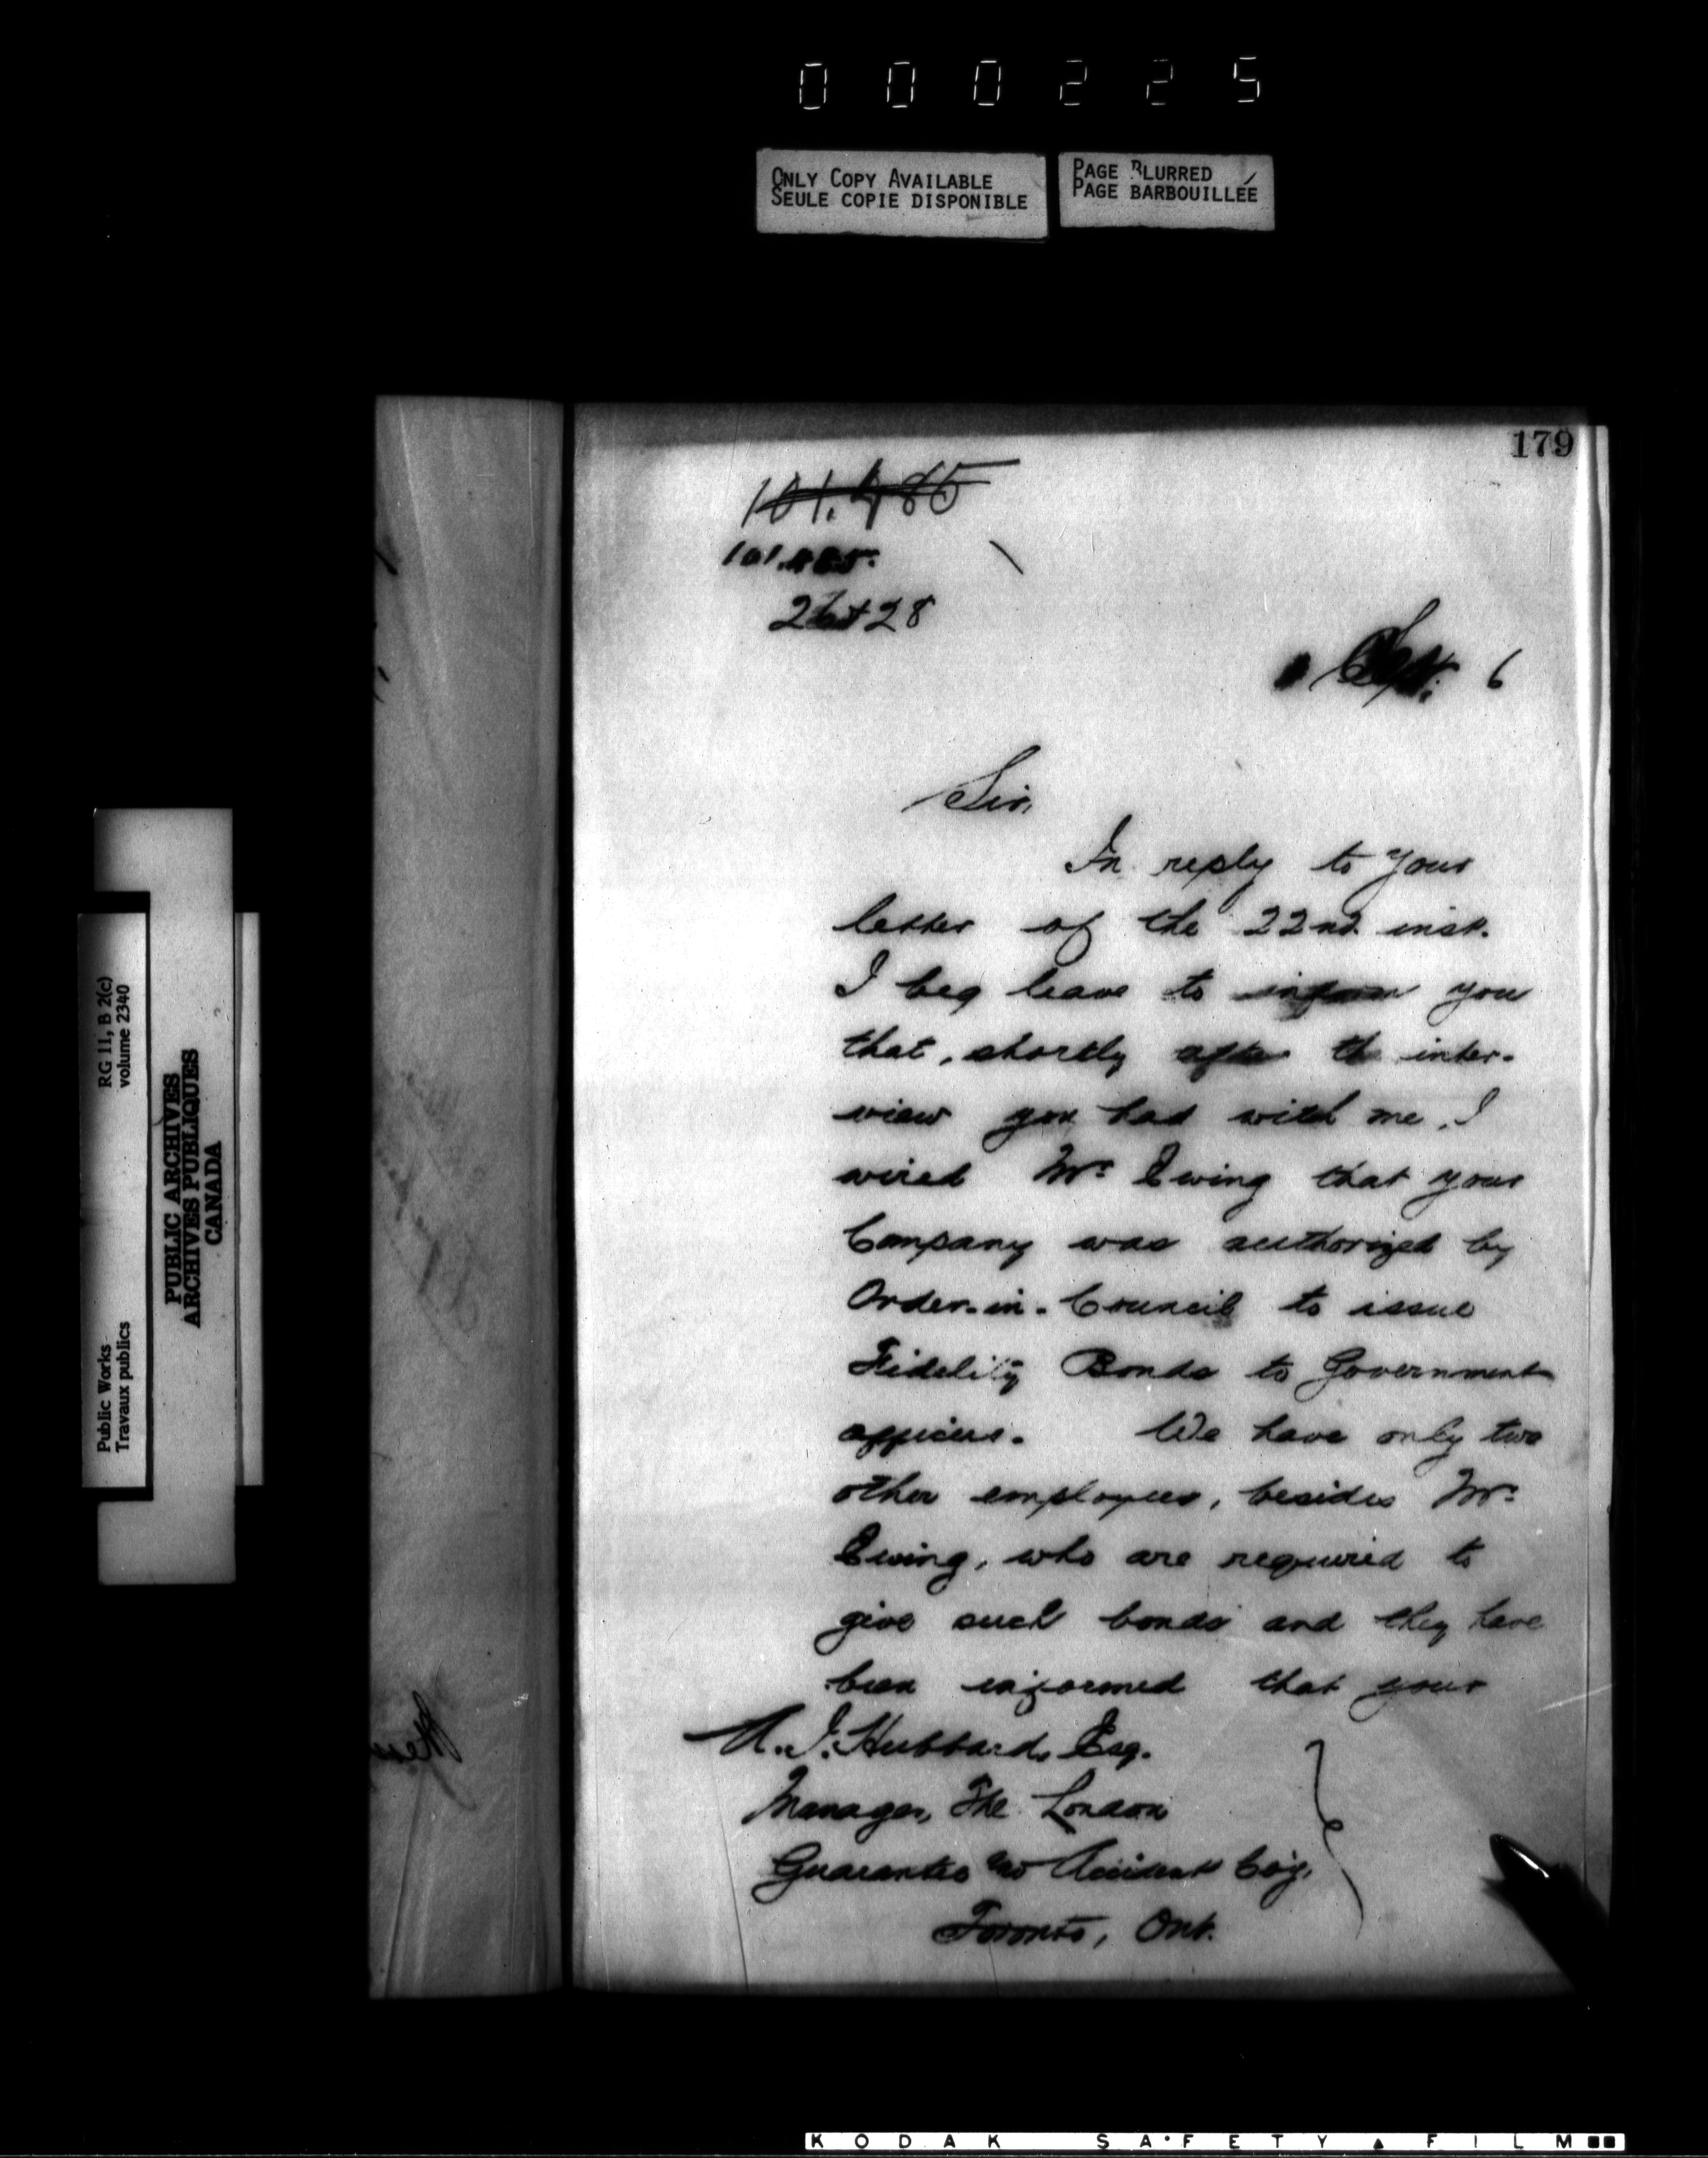 000225
ONLY COPY AVAILABLE
SEULE COPIE DISPONIBLE
PAGE BLURRED
PAGE BARBOUILLÉE
179
101.485
26+28
Sept. 6
Sir,
In reply to your
letter of the 22nd. inst.
I beg leave to inform you
that, shortly after the inter-
view you had with me, I
wired Mr. Ewing that your
Company was authorized by
Order-in-Council to issue
Fidelity Bonds to Government
officers. We have only two
other employees, besides Mr.
Ewing, who are required to
give such bonds and they have
been informed that your
A. J. Hubbard, Esq.
Manager, The London
Guarantee and Accident Co'y.
Toronto, Ont.
RG 11, B 2(c)
volume 2340
Public Works
Travaux publics
PUBLIC ARCHIVES
ARCHIVES PUBLIQUES
CANADA
KODAK SAFETY FILM